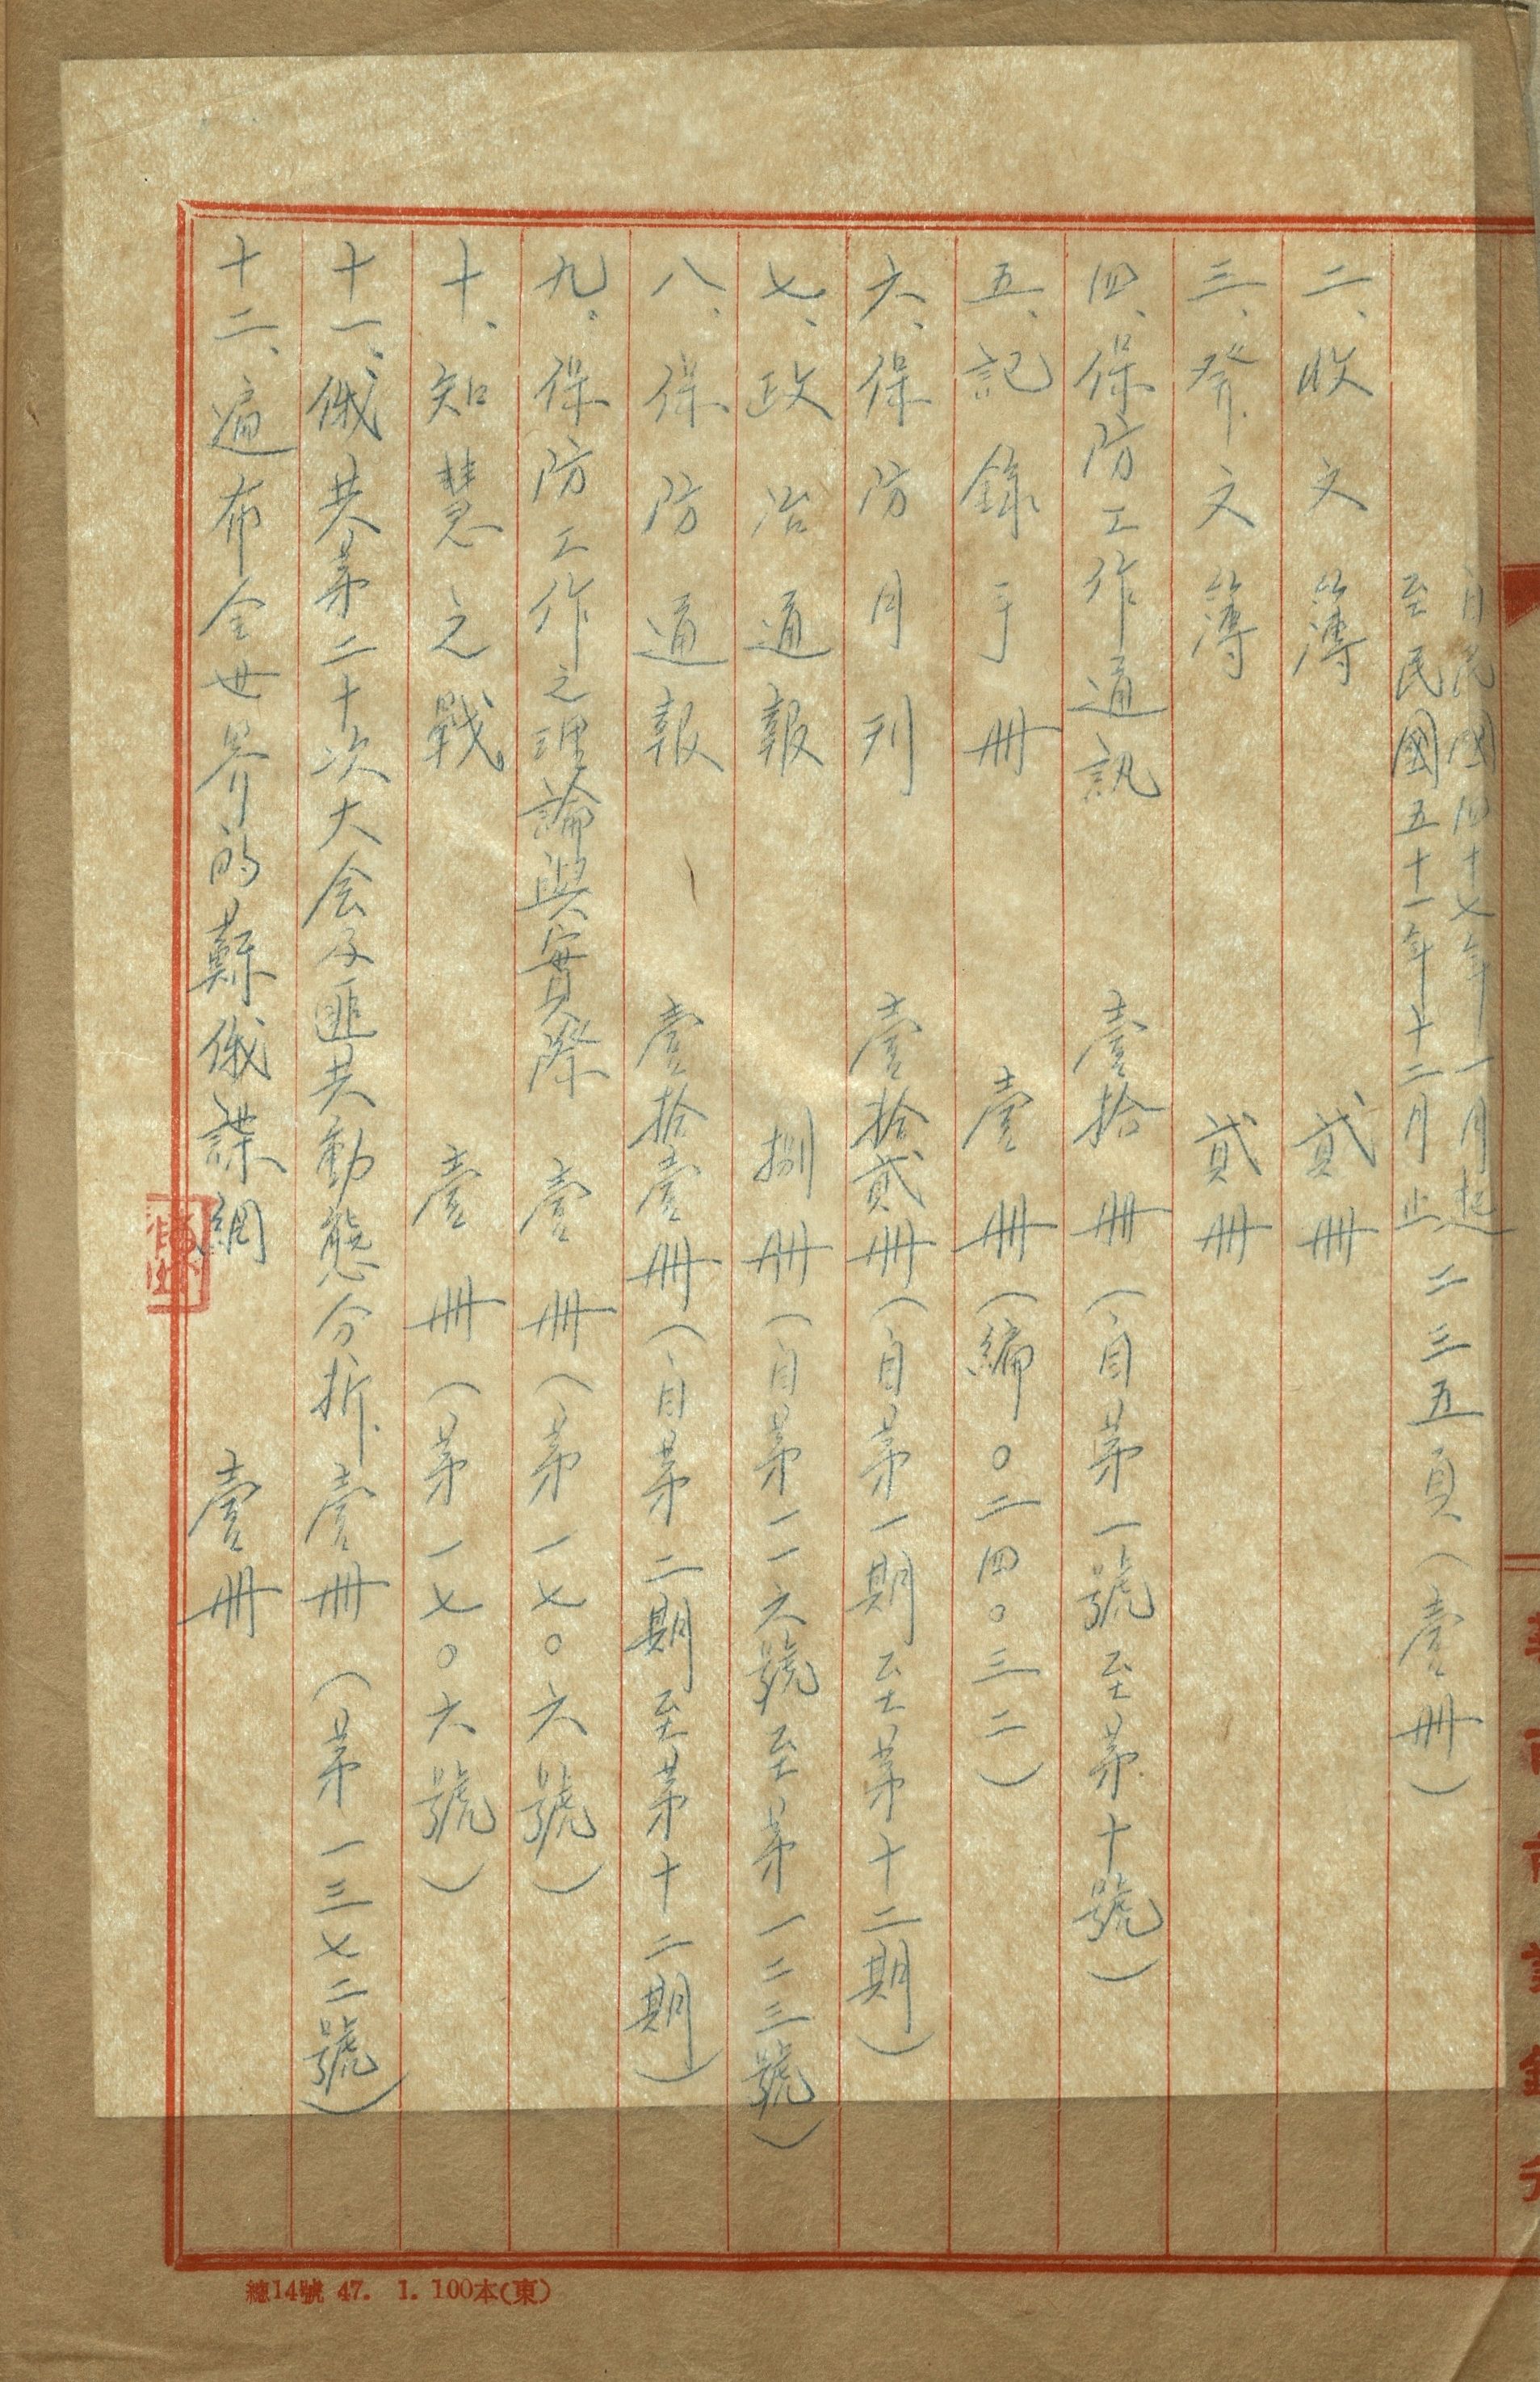 自民國四十七年一月起
至民國五十一年十二月止 二三五頁(壹冊)
二、收文簿 貳冊
三、發文簿 貳冊
四、保防工作通訊 壹拾冊(自第一號至第十號)
五、記錄手冊 壹冊(編0二四0三二)
六、保防月刊 壹拾貳冊(自第一期至第十二期)
七、政治通報 捌冊(自第一一六號至第一二三號)
八、保防通報 壹拾壹冊(自第二期至第十二期)
九。保防工作之理論與實際 壹冊(第一七0六號)
十、知慧之戰 壹冊(第一七0六號)
十一、俄共第二十次大会及匪共動態分折 壹冊(第一三七二號)
十二、遍布全世界的蘇俄諜網 壹冊
總14號 47. 1. 100本(東)